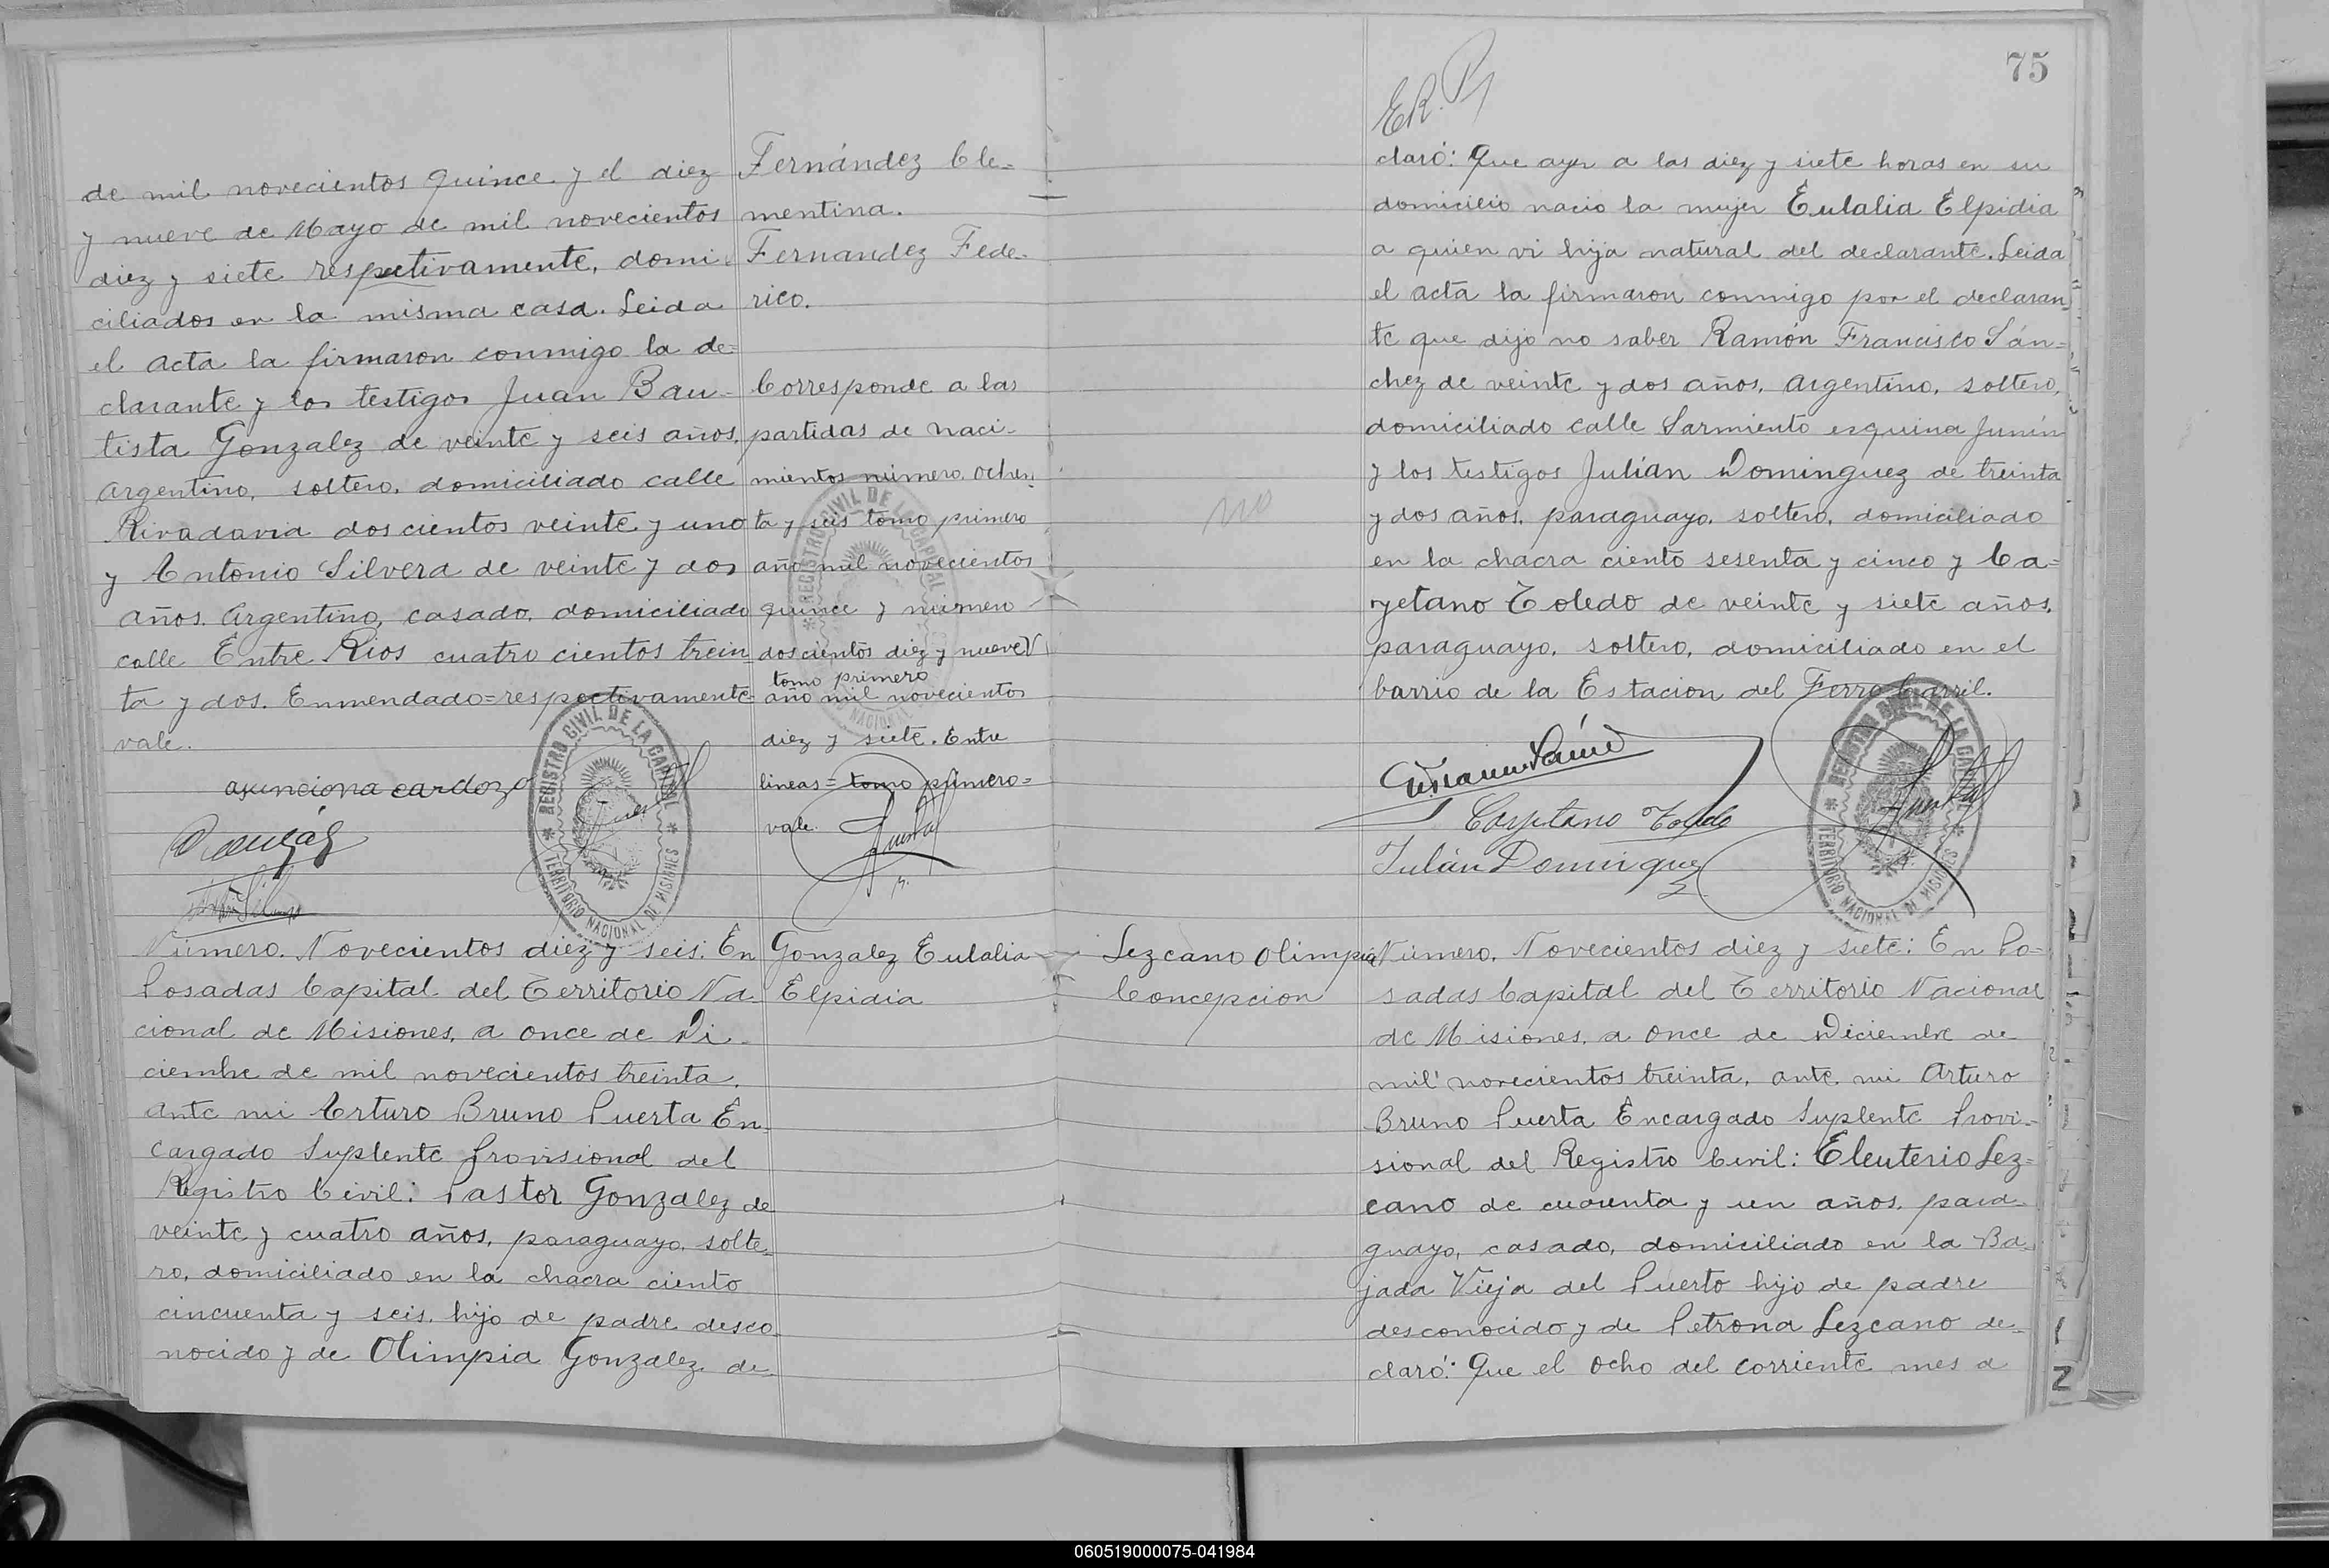 de mil novecientos quince y el diez
y nueve de Mayo de mil novecientos
diez y siete respectivamente, domi-
ciliados en la misma casa. Leida
el acta la firmaron conmigo la de-
clarante y los testigos Juan Bau-
tista Gonzalez de veinte y seis años,
argentino, soltero, domiciliado calle
Rivadavia doscientos veinte y uno
y Antonio Silvera de veinte y dos
años, Argentino, casado, domiciliado
calle Entre Rios cuatro cientos trein
ta y dos. Enmendado=respectivamente=
vale.
asunciona cardozo
REGISTRO CIVIL DE LA CAPITAL
TERRITORIO NACIONAL DE MISIONES
Fernández Cle-
mentina.
Fernandez Fede-
rico.
Corresponde a las
partidas de naci-
mientos número ochen
ta y seis tomo primero
año mil novecientos
quince y número
doscientos diez y nueve
tomo primero
año mil novecientos
diez y siete. Entre
lineas=tomo primero=
vale.
REGISTRO CIVIL DE LA CAPITAL
NACIONAL
Número. Novecientos diez y seis: En
Posadas Capital del Territorio Na-
cional de Misiones, a once de Di-
ciembre de mil novecientos treinta,
ante mi Arturo Bruno Puerta En-
cargado Suplente Provisional del
Registro Civil: Pastor Gonzalez de
veinte y cuatro años, paraguayo, solte-
ro, domiciliado en la chacra ciento
cincuenta y seis, hijo de padre desco-
nocido y de Olimpia Gonzalez de-
Gonzalez Eulalia
Elpidia
75
claró: Que ayer a las diez y siete horas en su
domicilio nacio la mujer Eulalia Elpidia
a quien vi hija natural del declarante. Leida
el acta la firmaron conmigo por el declaran
te que dijo no saber Ramón Francisco Sán-
chez de veinte y dos años, argentino, soltero,
domiciliado calle Sarmiento esquina Junin
y los testigos Julián Dominguez de treinta
y dos años, paraguayo, soltero, domiciliado
en la chacra ciento sesenta y cinco y Ca-
yetano Toledo de veinte y siete años,
paraguayo, soltero, domiciliado en el
barrio de la Estacion del Ferro Carril.
no
Cayetano Toledo
Julián Dominguez
REGISTRO CIVIL DE LA CAPITAL
TERRITORIO NACIONAL DE MISIONES
Lezcano Olimpia
Concepcion
Número. Novecientos diez y siete: En Po-
sadas Capital del Territorio Nacional
de Misiones, a once de Diciembre de
mil novecientos treinta, ante mi Arturo
Bruno Puerta Encargado Suplente Provi-
sional del Registro Civil: Eleuterio Lez-
cano de cuarenta y un años, para-
guayo, casado, domiciliado en la Ba-
jada Vieja del Puerto hijo de padre
desconocido y de Petrona Lezcano de-
claró: Que el ocho del corriente mes a
060519000075-041984